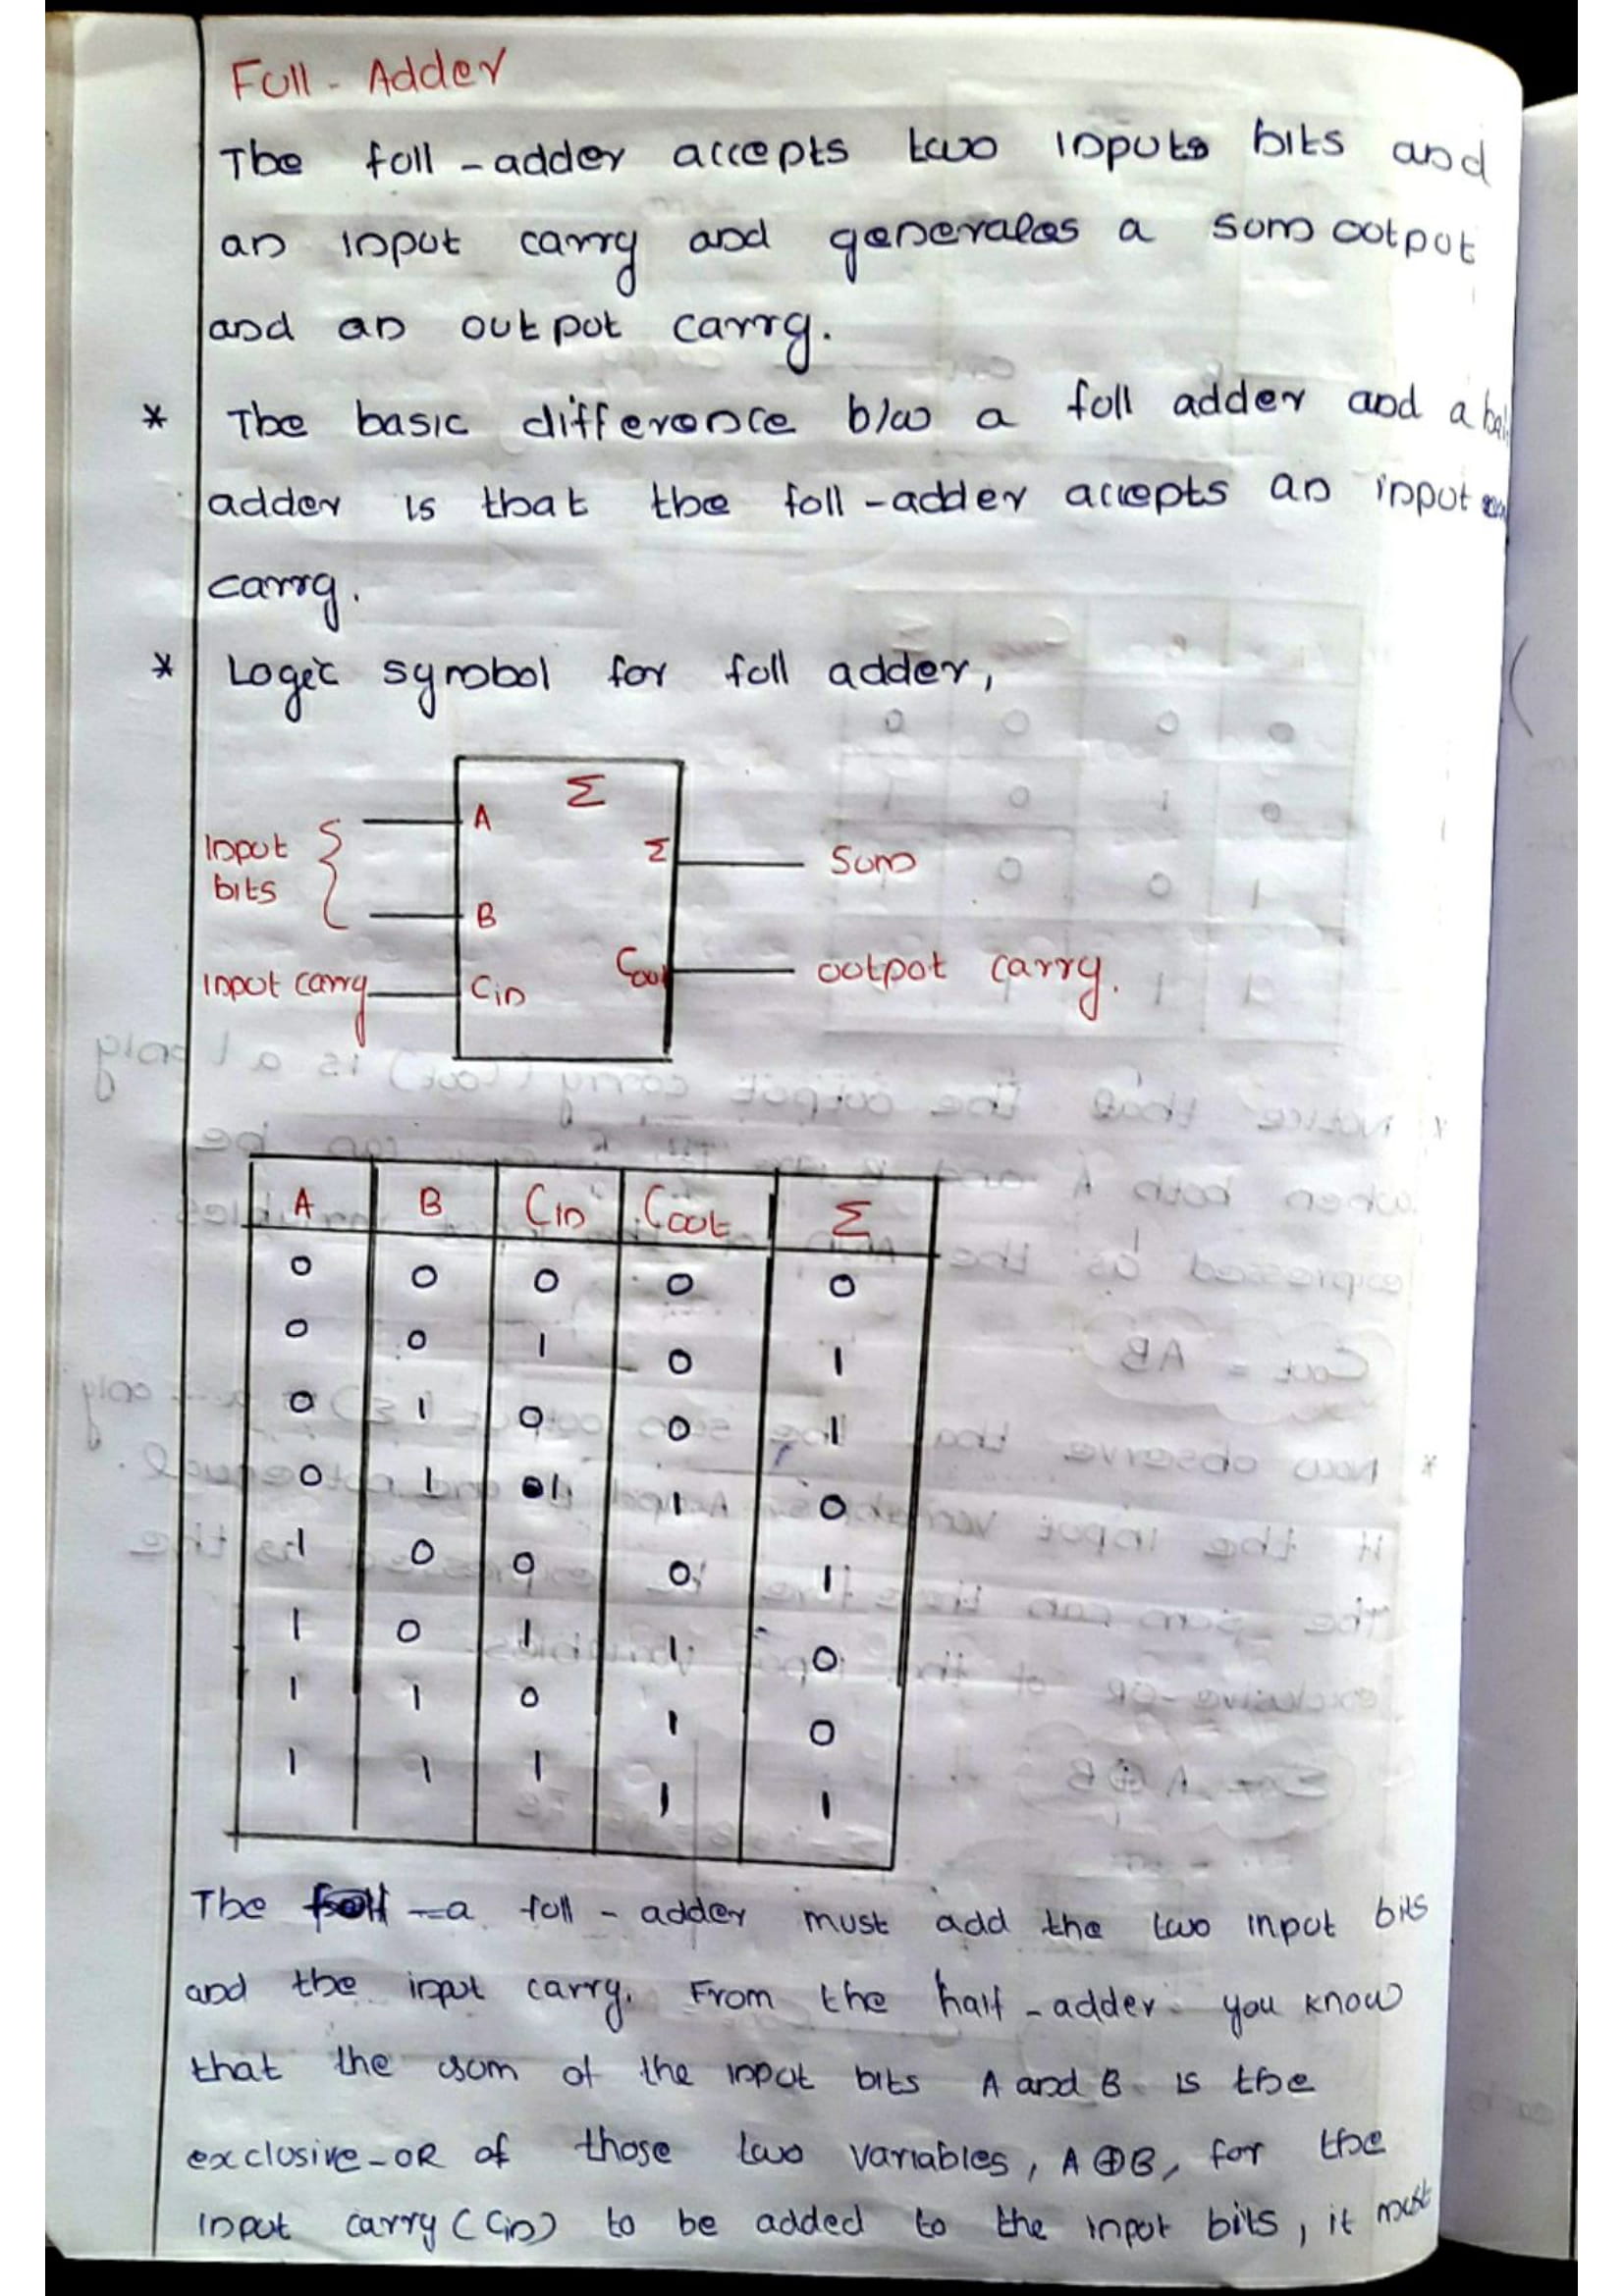 Full - Adder
The full - adder accepts two inputs bits and
an input carry and generates a sum output
and an output carry.
* The basic difference b/w a full adder and a hal
adder is that the full - adder accepts an input
carry.
* Logic symbol for full adder,
Σ
A
Input
bits
Σ
Sum
B
Input carry
Cin
Cout
output carry.
A B Cin Cout Σ
0 0 0 0 0
0 0 1 0 1
0 1 0 0 1
0 1 1 1 0
1 0 0 0 1
1 0 1 1 0
1 1 0 1 0
1 1 1 1 1
The a full - adder must add the two input bits
and the input carry. From the half - adder you know
that the sum of the input bits A and B is the
exclusive - OR of those two variables, A ⊕ B, for the
input carry (Cin) to be added to the input bits, it must